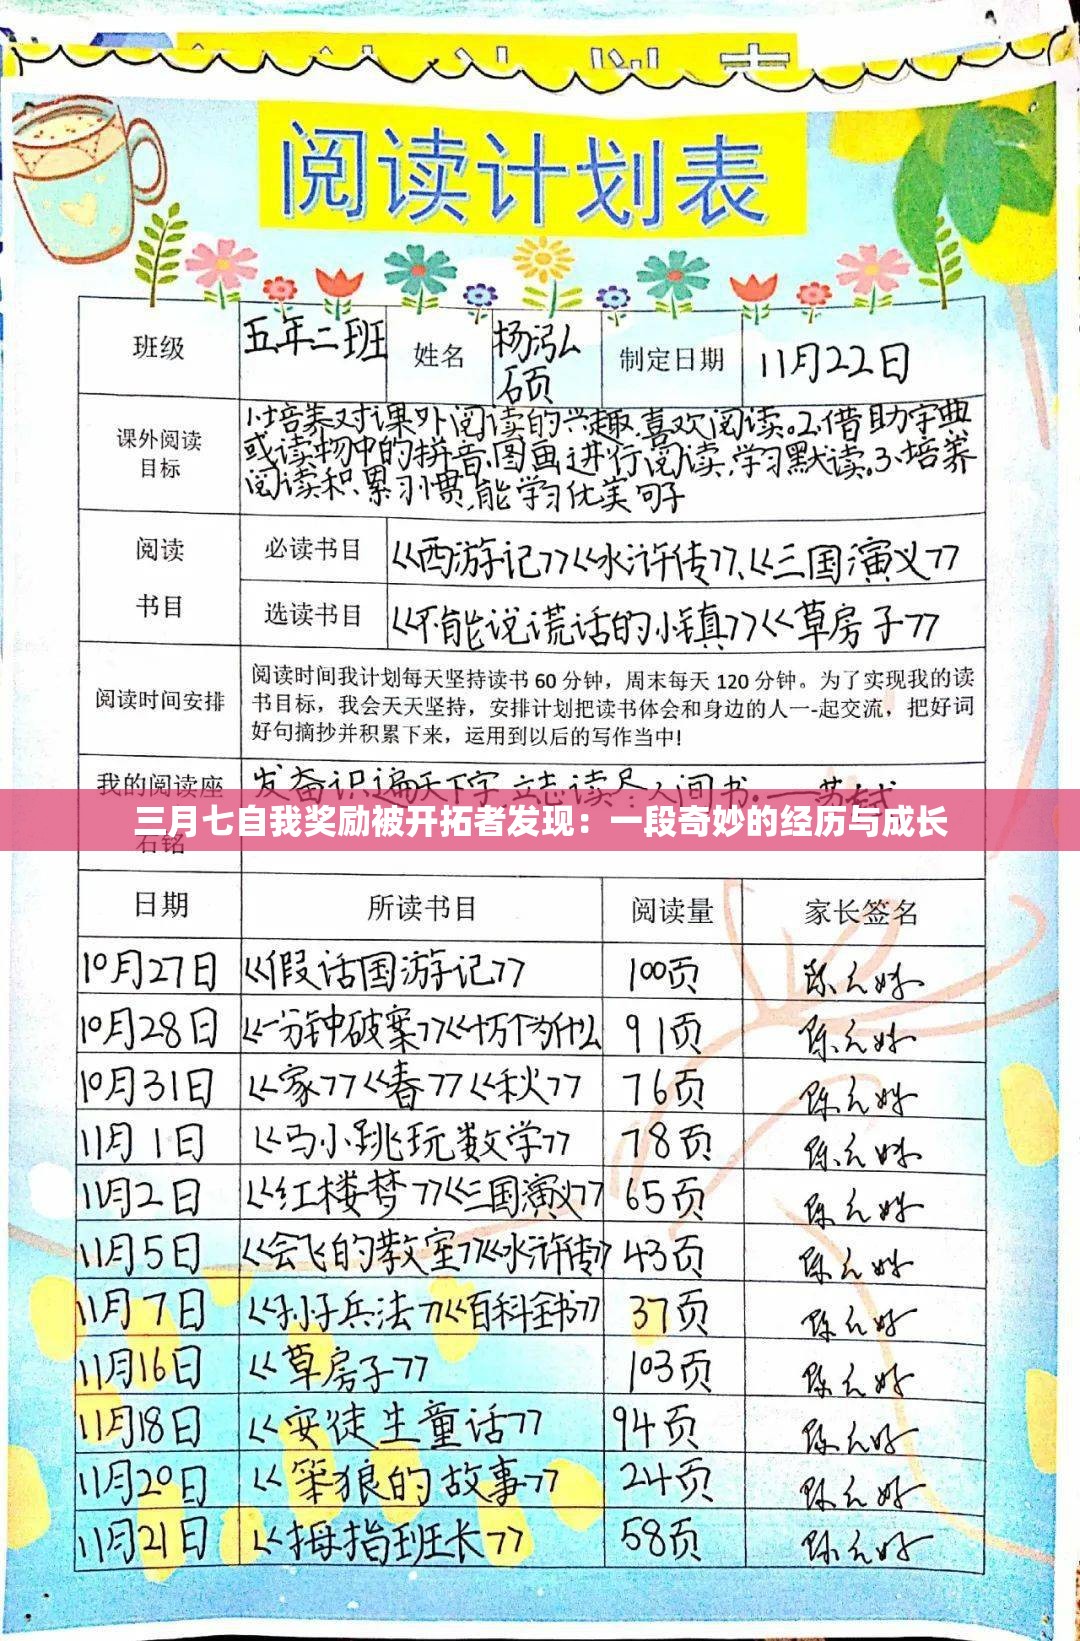 阅读计划表
班级 五年二班 姓名 杨泓硕 制定日期 11月22日
课外阅读目标
1.培养对课外阅读的兴趣,喜欢阅读。2.借助字典
或读物中的拼音、图画进行阅读,学习默读。3、培养
阅读积累习惯,能学习优美句子
阅读书目
必读书目 <<西游记>><<水浒传>>、<<三国演义>>
选读书目 <<不能说谎话的小镇>><<草房子>>
阅读时间安排
阅读时间我计划每天坚持读书60分钟，周末每天120分钟。为了实现我的读
书目标，我会天天坚持，安排计划把读书体会和身边的人一-起交流，把好词
好句摘抄并积累下来，运用到以后的写作当中!
我的阅读座 发奋识遍天下字 立志读尽人间书。——苏轼
三月七自我奖励被开拓者发现：一段奇妙的经历与成长
右铭
日期 所读书目 阅读量 家长签名
10月27日 <<假话国游记>> 100页
10月28日 <<一分钟破案>><<十万个为什么 91页
10月31日 <<家>><<春>><<秋>> 76页
11月1日 <<马小跳玩数学>> 78页
11月2日 <<红楼梦>><<三国演义>> 65页
11月5日 <<会飞的教室>><<水浒传>> 43页
11月7日 <<孙子兵法>><<百科全书>> 37页
11月16日 <<草房子>> 103页
11月18日 <<安徒生童话>> 94页
11月20日 <<笨狼的故事>> 24页
11月21日 <<拇指班长>> 58页